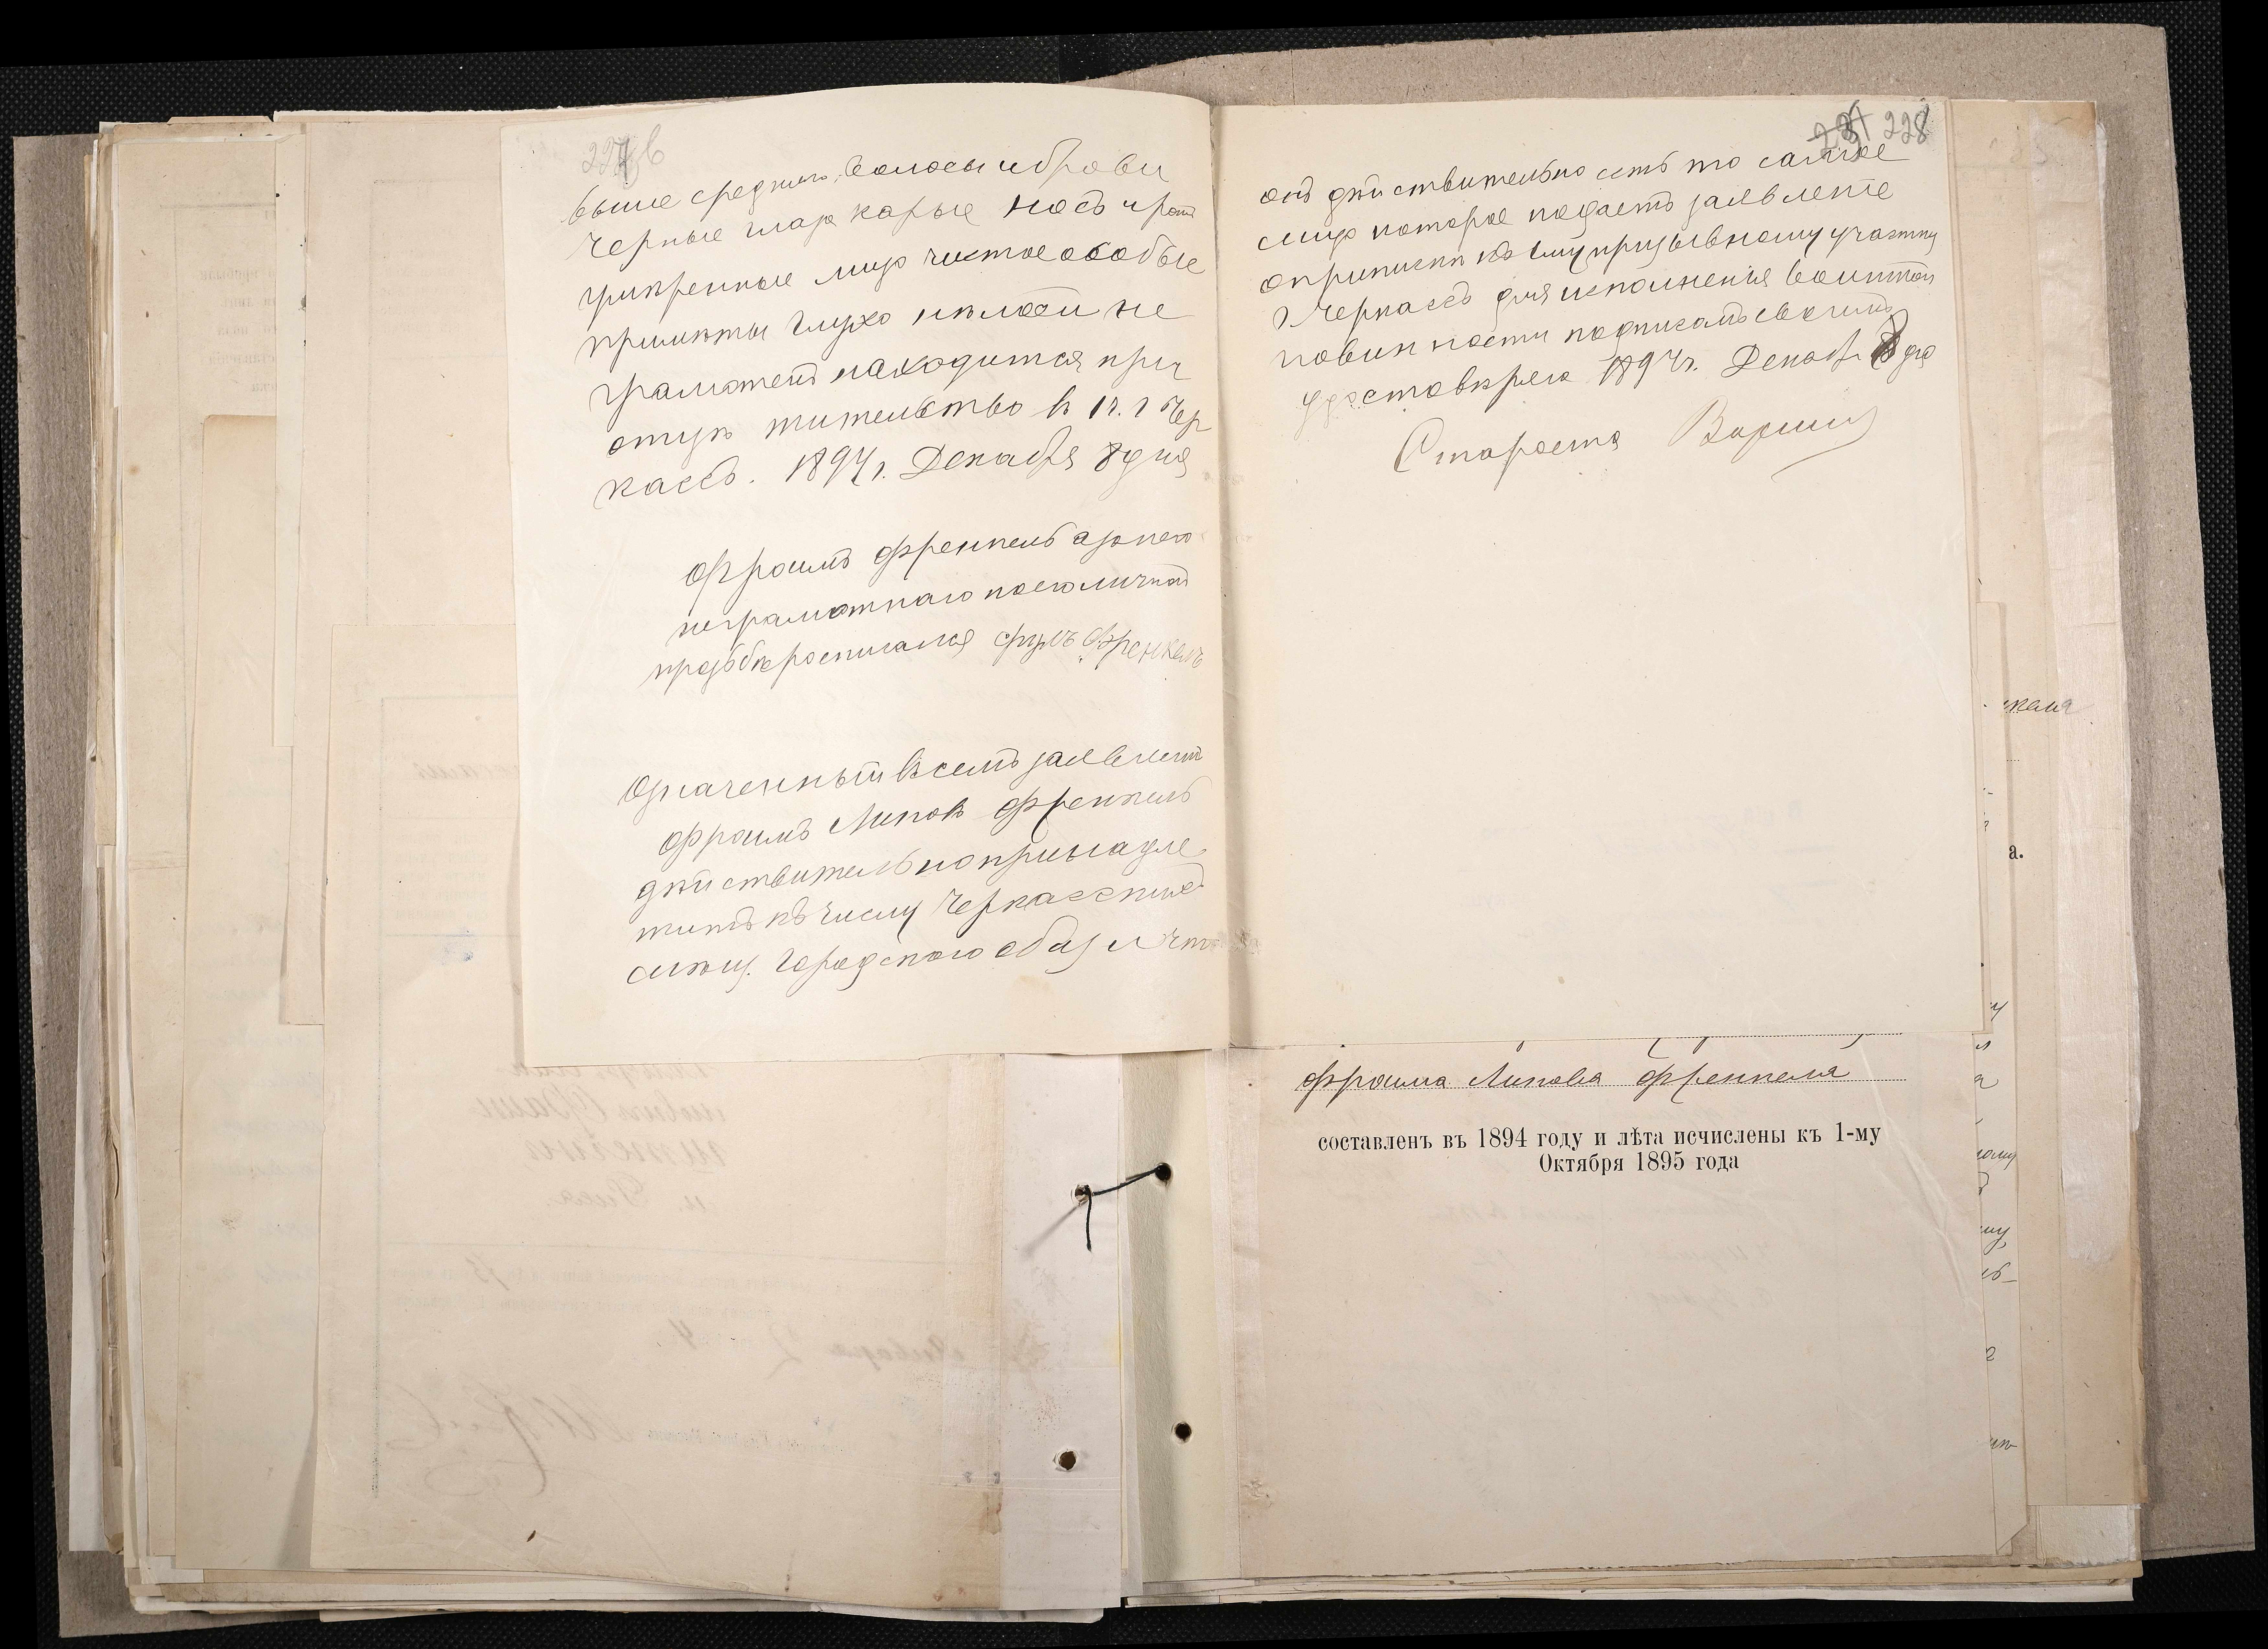 227об
выше средняго, волосы и брови
черные глаза карые носъ и ротъ
умѣренные лицо чистое особые
примѣты глухо нѣмой не
грамотенъ находится при
отцѣ жительство в г. Чер
кассъ. 1894 г. Декабря 8 дня
Фроимъ Френкель а за него
неграмотнаго по его личной
прозбѣ росписался Френкель
Означенный въ семъ заявленіи
Фроимъ Липовъ Френкель
дѣйствительно принадле
житъ къ числу Черкасскихъ
мѣщ. городского общ и что
231 228
онъ дѣйствительно есть то самое
лицо которое подаетъ заявленіе
о припискѣ къ призывному участку
г Черкассъ для исполненія воинской
повинности подписомъ своимъ
удостовѣряю 1894 г. Декабр 8 дня
Староста
келя
а.
Фроима Липова Френкеля
составленъ въ 1894 году и лѣта исчислены къ 1-му
Октября 1895 года